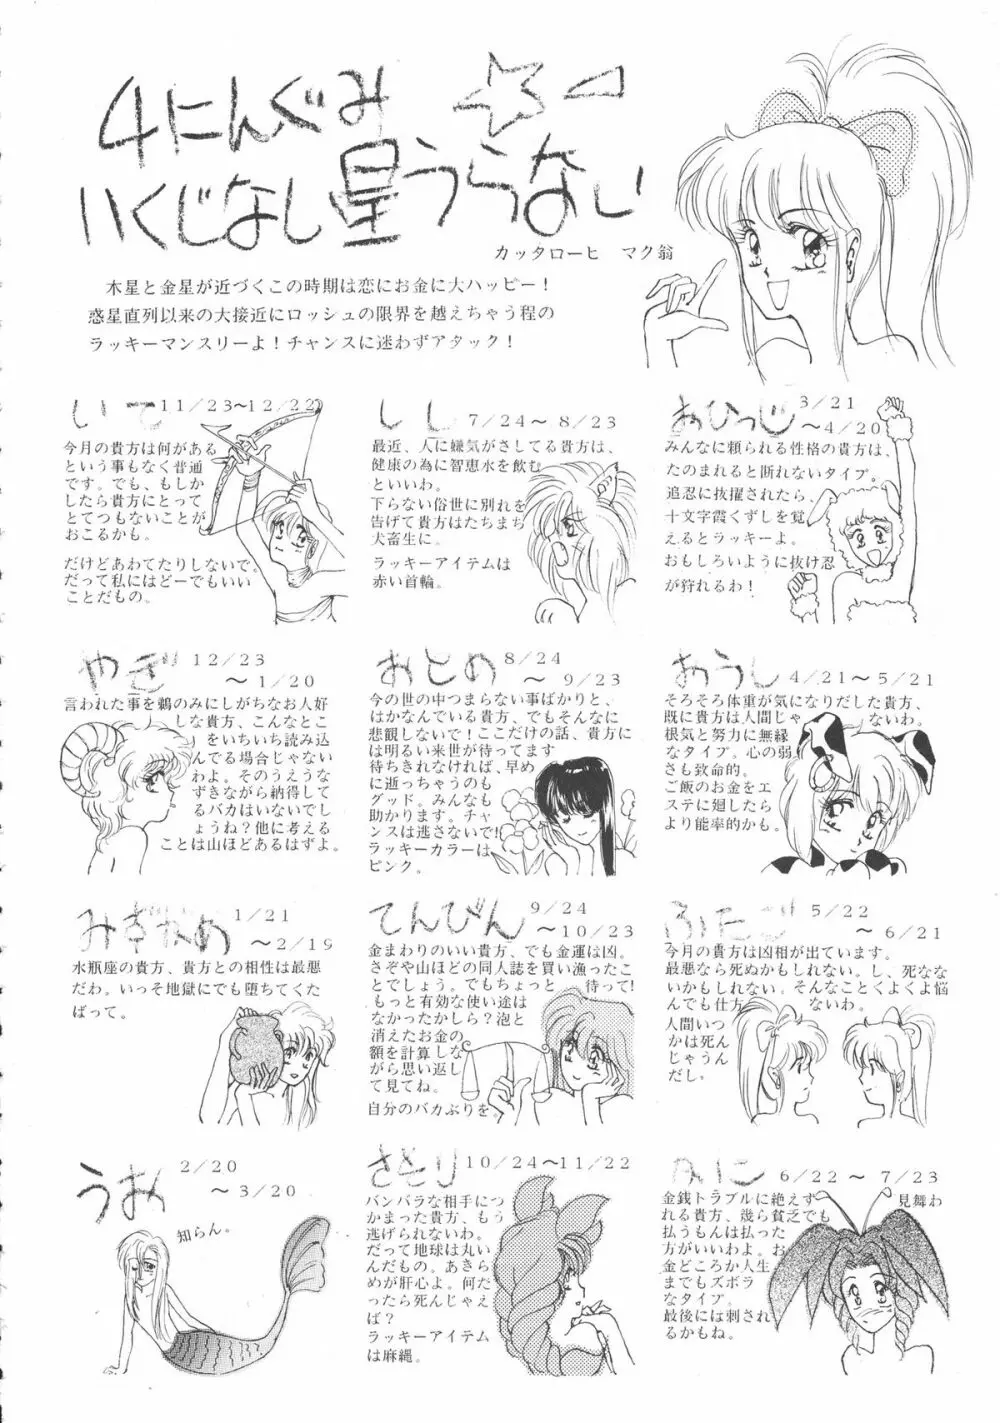 4にんぐみ
いくじなし星うらない
カッタローヒ　マク翁
木星と金星が近づくこの時期は恋にお金に大ハッピー！
惑星直列以来の大接近にロッシュの限界を越えちゃう程の
ラッキーマンスリーよ！チャンスに迷わずアタック！
おひつじ
3/21
～4/20
みんなに頼られる性格の貴方は、
たのまれると断れないタイプ。
追忍に抜擢されたら、
十文字霞くずしを覚
えるとラッキーよ。
おもしろいように抜け忍
が狩れるわ！
しし
7/24～8/23
最近、人に嫌気がさしてる貴方は、
健康の為に智恵水を飲む
といいわ。
下らない俗世に別れを
告げて貴方はたちまち
犬畜生に。
ラッキーアイテムは
赤い首輪。
いて
11/23～12/22
今月の貴方は何がある
という事もなく普通
です。でも、もしか
したら貴方にとって
とてつもないことが
おこるかも。
だけどあわてたりしないで。
だって私にはどーでもいい
ことだもの。
おうし
4/21～5/21
そろそろ体重が気になりだした貴方、
既に貴方は人間じゃないわ。
根気と努力に無縁
なタイプ。心の弱
さも致命的。
ご飯のお金をエ
ステに廻したら
より能率的かも。
おとめ
8/24
～9/23
今の世の中つまらない事ばかりと、
はかなんでいる貴方、でもそんなに
悲観しないで！ここだけの話、貴方に
は明るい来世が待ってます
待ちきれなければ、早め
に逝っちゃうのも
グッド。みんなも
助かります。チャ
ンスは逃さないで！
ラッキーカラーは
ピンク。
やぎ
12/23
～1/20
言われた事を鵜のみにしがちなお人好
しな貴方、こんなとこ
をいちいち読み込
んでる場合じゃない
わよ。そのうえうな
ずきながら納得して
るバカはいないでし
ょうね？他に考える
ことは山ほどあるはずよ。
ふたご
5/22
～6/21
今月の貴方は凶相が出ています。
最悪なら死ぬかもしれない。し、死なな
いかもしれない。そんなことくよくよ悩
んでも仕方ないわ。
人間いつ
かは死ん
じゃうん
だし。
てんびん
9/24
～10/23
金まわりのいい貴方、でも金運は凶。
さぞや山ほどの同人誌を買い漁ったこ
とでしょう。でもちょっと待って！
もっと有効な使い途は
なかったかしら？泡と
消えたお金の
額を計算しな
がら思い返し
て見てね。
自分のバカぶりを。
みずがめ
1/21
～2/19
水瓶座の貴方、貴方との相性は最悪
だわ。いっそ地獄にでも堕ちてくた
ばって。
かに
6/22～7/23
金銭トラブルに絶えず見舞わ
れる貴方、幾ら貧乏でも
払うもんは払った
方がいいわよ。お
金どころか人生
までもズボラ
なタイプ。
最後には刺され
るかもね。
さそり
10/24～11/22
バンバラな相手につ
かまった貴方、もう
逃げられないわ。
だって地球は丸い
んだもの。あきら
めが肝心よ。何だ
ったら死んじゃえ
ば？
ラッキーアイテム
は麻縄。
うお
2/20
～3/20
知らん。